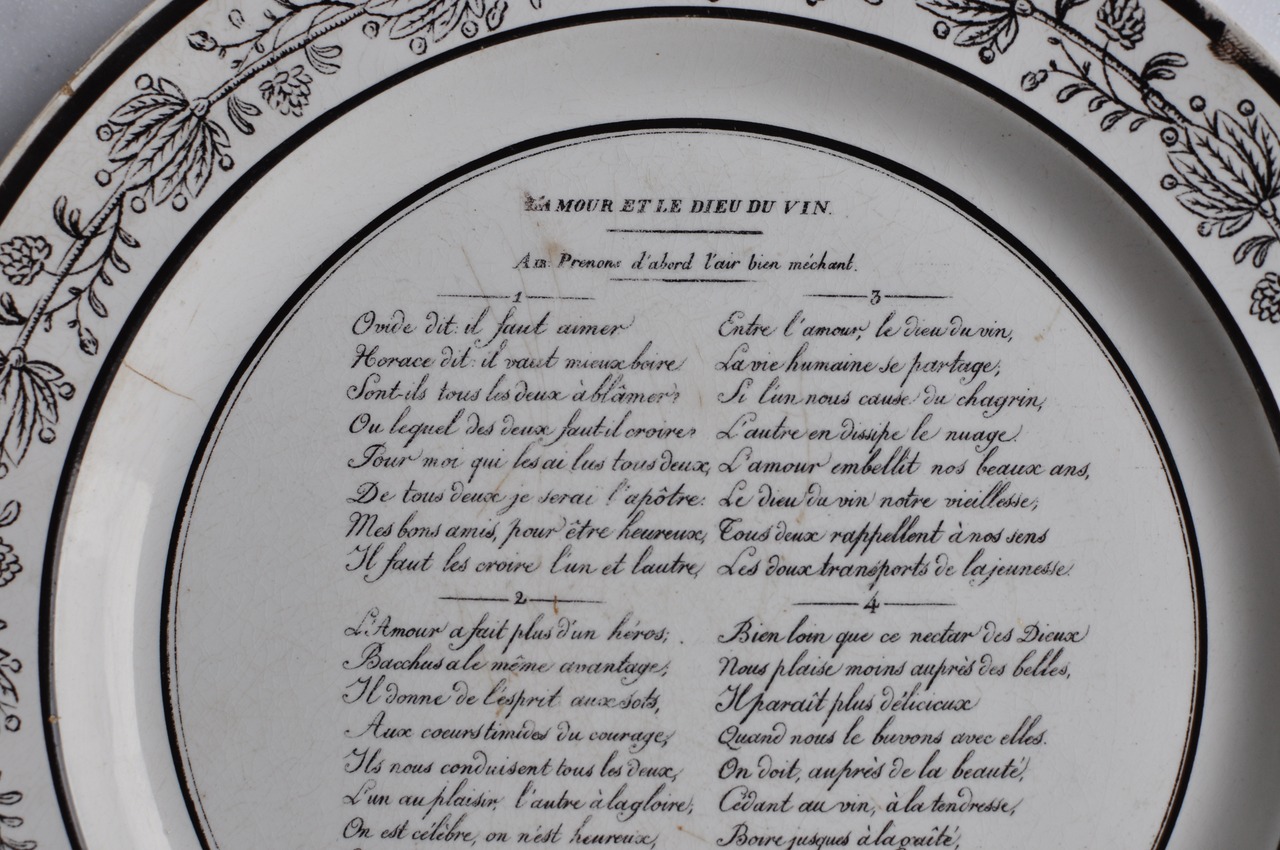 L'AMOUR ET LE DIEU DU VIN.
AIR: Prenons d'abord l'air bien méchant.
1
Ovide dit: il faut aimer
Horace dit: il vaut mieux boire
Sont-ils tous les deux à blâmer?
Ou lequel des deux faut-il croire?
Pour moi qui les ai lus tous deux,
De tous deux je serai l'apôtre:
Mes bons amis, pour être heureux,
Il faut les croire l'un et l'autre,
2
L'Amour a fait plus d'un héros;
Bacchus a le même avantage;
Il donne de l'esprit aux sots,
Aux coeurs timides du courage;
Ils nous conduisent tous les deux,
L'un au plaisir, l'autre à la gloire;
On est célèbre, on n'est heureux,
3
Entre l'amour, le dieu du vin,
La vie humaine se partage;
Si l'un nous cause du chagrin,
L'autre en dissipe le nuage.
L'amour embellit nos beaux ans,
Le dieu du vin notre vieillesse;
Tous deux rappellent à nos sens
Les doux transports de la jeunesse.
4
Bien loin que ce nectar des Dieux
Nous plaise moins auprès des belles,
Il paraît plus délicieux
Quand nous le buvons avec elles.
On doit, auprès de la beauté,
Cédant au vin, à la tendresse,
Boire jusques à la gaîté,